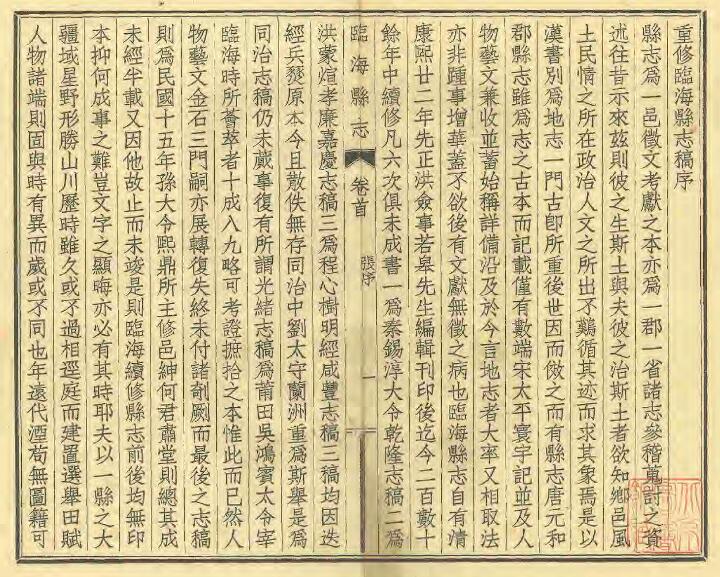 重修臨海縣志稿序
縣志爲一邑徵文考獻之本亦爲一郡一省諸志參稽蒐討之資
述往昔示來茲則彼之生斯土與夫彼之治斯土者欲知鄉邑風
土民情之所在政治人文之所出不囏循其迹而求其象焉是以
漢書別爲地志一門古卽所重後世因而倣之而有縣志唐元和
郡縣志雖爲志之古本而記載僅有數端宋太平寰宇記並及人
物藝文兼收並蓄始稱詳備沿及於今言地志者大率又相取法
亦非踵事增華蓋不欲後有文獻無徵之病也臨海縣志自有清
康熙廿二年先正洪僉事若皋先生編輯刊印後迄今二百數十
餘年中續修凡六次俱未成書一爲秦錫淳大令乾隆志稿二爲
臨海縣志 卷首 張序 一
洪蒙煊孝廉嘉慶志稿三爲程心樹明經咸豐志稿三稿均因迭
經兵燹原本今且散佚無存同治中劉太守蘭洲重爲斯舉是爲
同治志稿仍未蕆事復有所謂光緒志稿爲莆田吳鴻賓太令宰
臨海時所薈萃者十成八九略可考證摭拾之本惟此而已然人
物藝文金石三門嗣亦展轉復失終未付諸剞劂而最後之志稿
則爲民國十五年孫大令熙鼎所主修邑紳何君肅堂則總其成
未經半載又因他故止而未竣是則臨海續修縣志前後均無印
本抑何成事之難豈文字之顯晦亦必有其時耶夫以一縣之大
疆域星野形勝山川歷時雖久或不過相逕庭而建置選舉田賦
人物諸端則固與時有異而歲或不同也年遠代湮苟無圖籍可